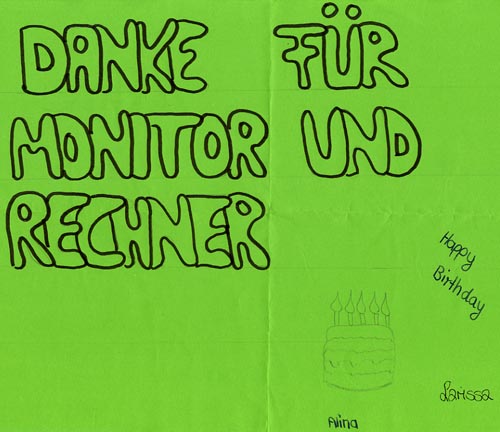 DANKE FÜR
MONITOR UND
RECHNER
Happy
Birthday
Larissa
Alina